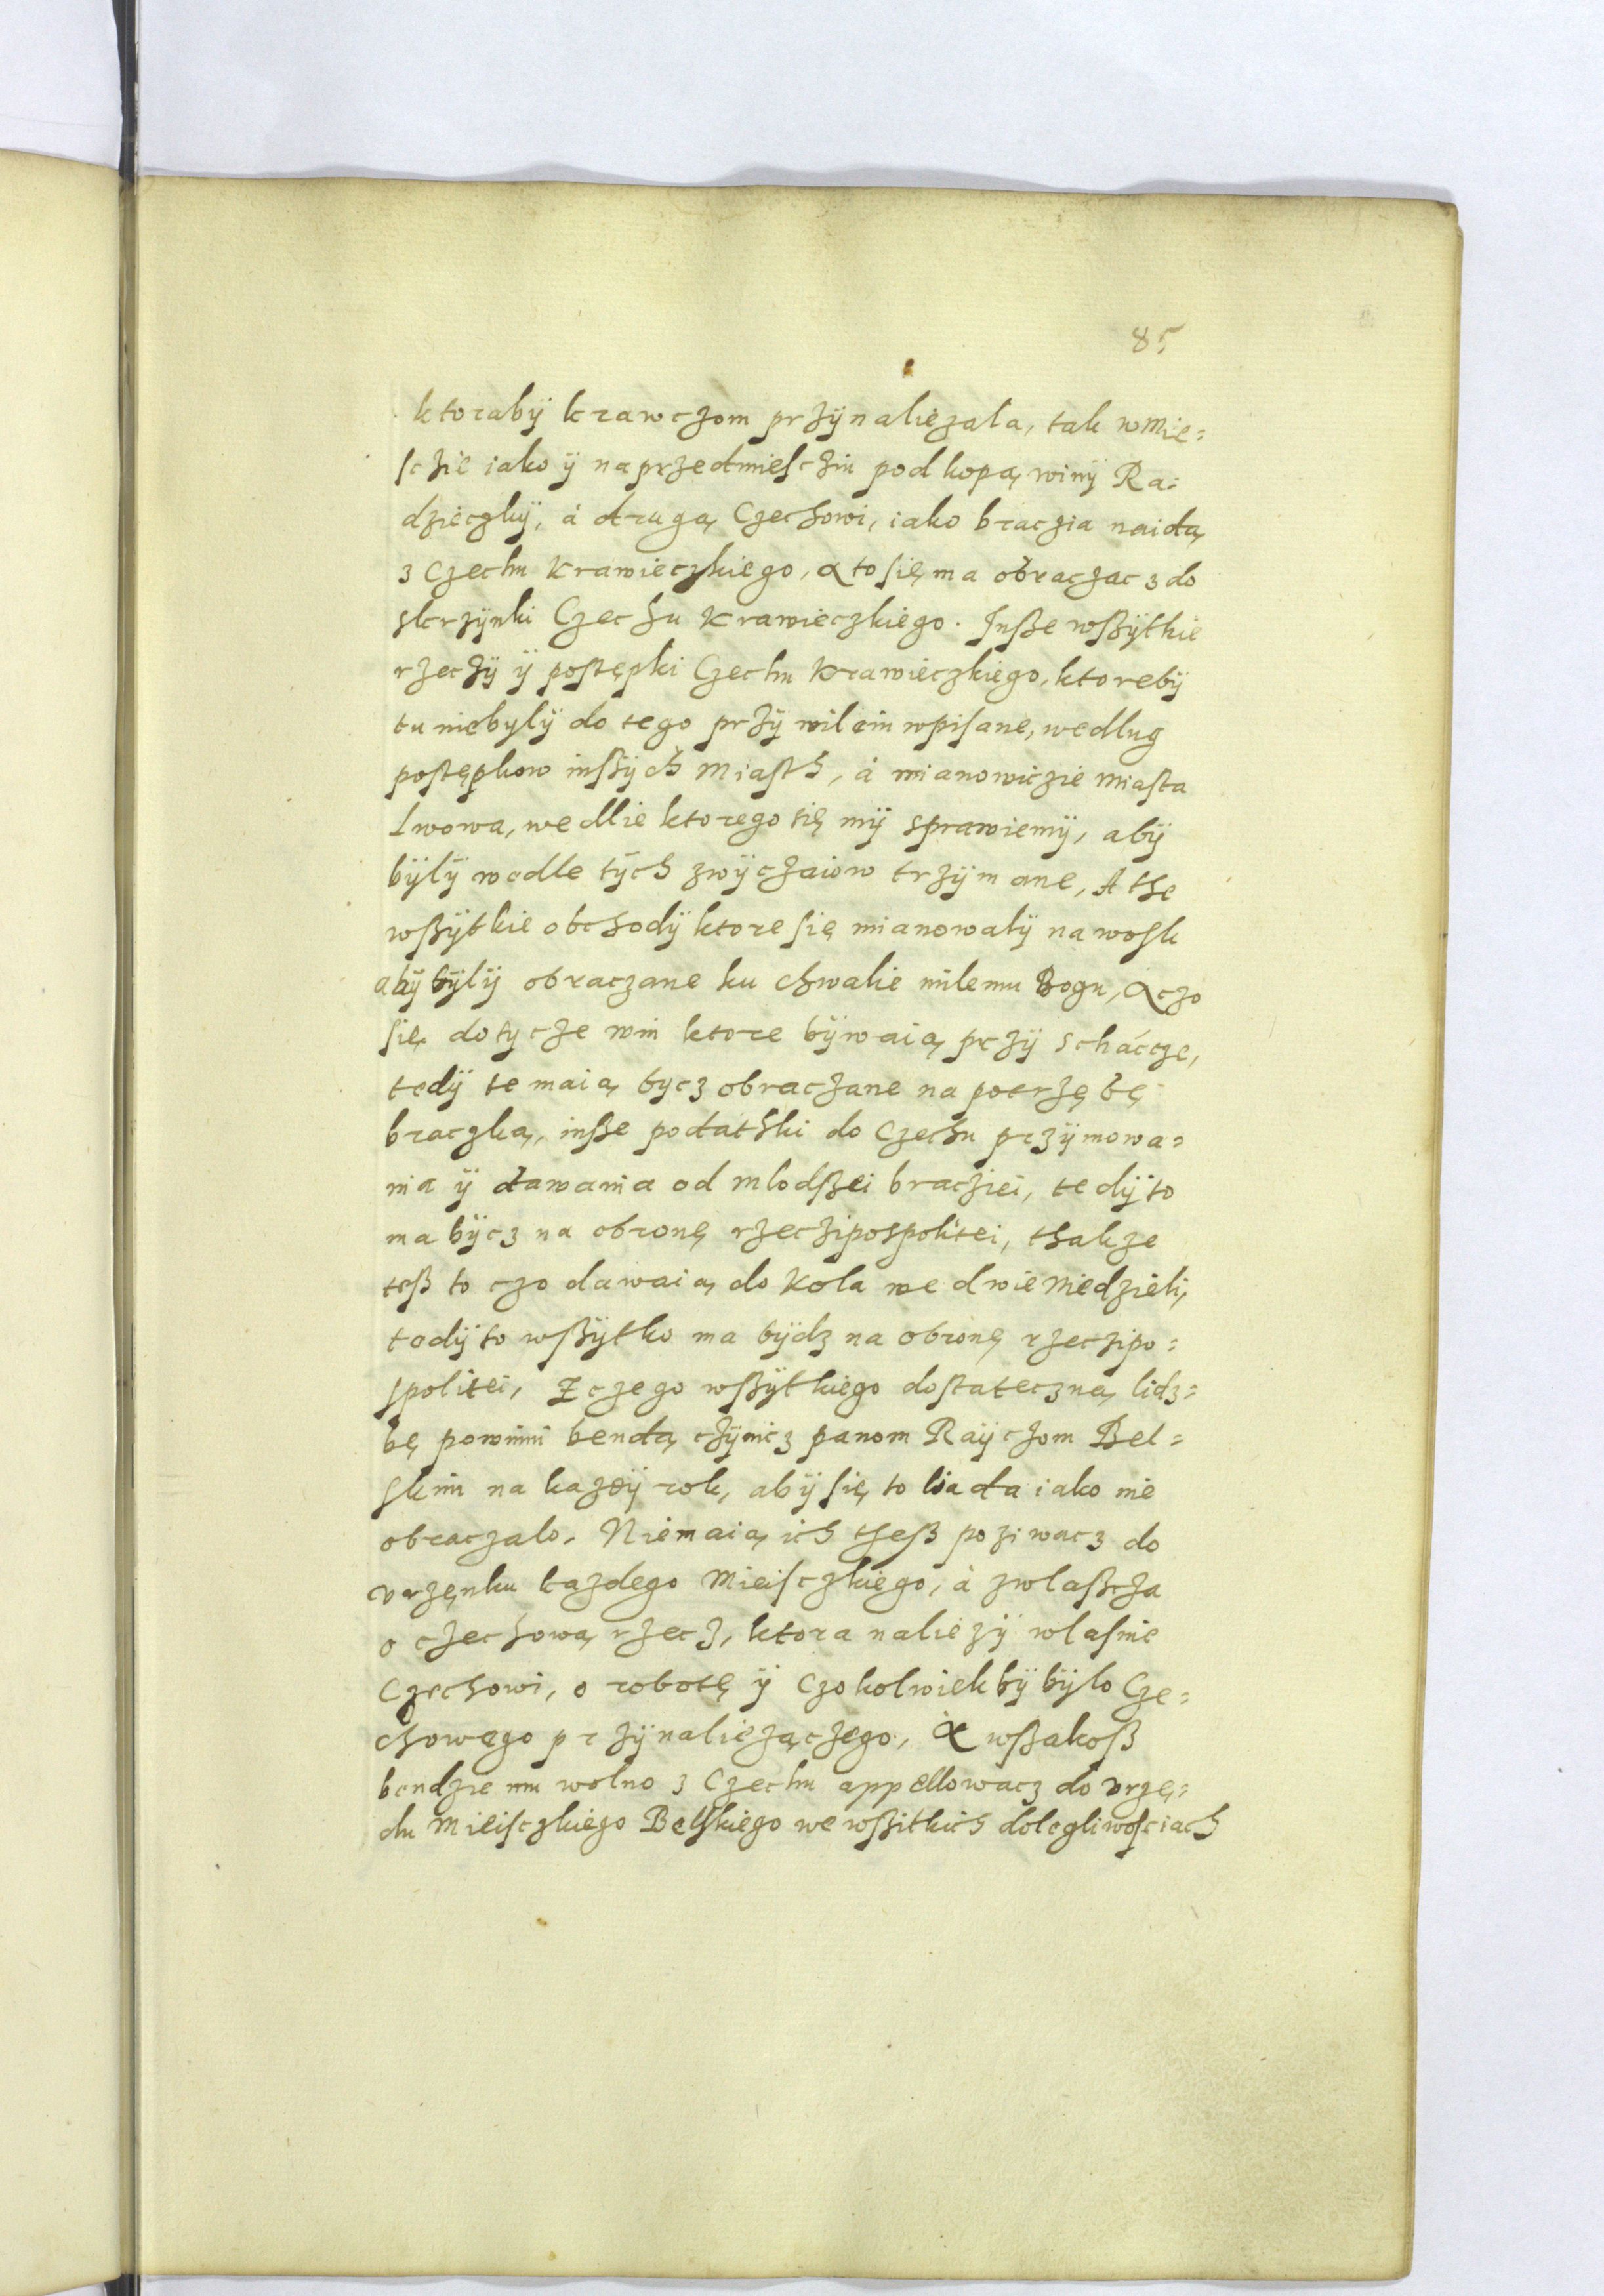 85
ktorabÿ krawczom przÿnaliezala, tak wmie=
sczie iako ÿ naprzedmiescziu pod kopą winÿ Ra=
dzieczkÿ, á drugą Czechowi, iako braczia naidą
z Czechu Krawieczkiego, a to się ma obraczacz do
skrzÿnki Czechu Krawieczkiego. Insze wszÿtkie
rzeczÿ ÿ postępki Czechu Krawieczkiego, ktorebÿ
tu niebylÿ do tego przÿwileiu wpisane, wedlug
postępkow inszÿch Miasth, á mianowiczie Miasta
Lwowa, wedlie ktorego się mÿ sprawiemÿ, abÿ
bÿlÿ wedle tÿch zwÿczaiow trzÿmane, A the
wszÿtkie obchodÿ ktore się mianowalÿ nawosk
abÿ bÿlÿ obraczane ku chwalie milemu Bogu, A czo
się dotycze win ktore bÿwaią przÿ schácze,
tedÿ te maią bycz obraczane na potrzębę
braczką, insze podathki do Czechu przÿmowa=
nia ÿ dawania od mlodszei braciei, tedÿ to
ma bÿcz na obronę rzeczipospolitei, thakze
tesz to czo dawaią do Kola we dwie Niedzieli,
tedÿ to wszÿtko ma bÿdz na obronę rzeczipo=
spolitei, Z czego wszÿtkiego dostateczną lidz=
bę powinni bendą czÿnicz panom Raÿczom Bel=
skim na kazdÿ rok, abÿ się to liada iako nie
obraczalo. Niemaią ich thesz poziwacz do
vrzęnku kazdego Mieisczkiego, á zwlascza
o czechową rzecz, ktora naliezÿ wlasnie
Czechowi, o robotę ÿ Czokolwiek bÿ bÿlo Cze=
chowego przÿnaliezączego, A wszakosz
bendzie mu wolno z Czechu appellowacz do vrzę=
du Mieisczkiego Belskiego we wszitkich dolegliwosciach